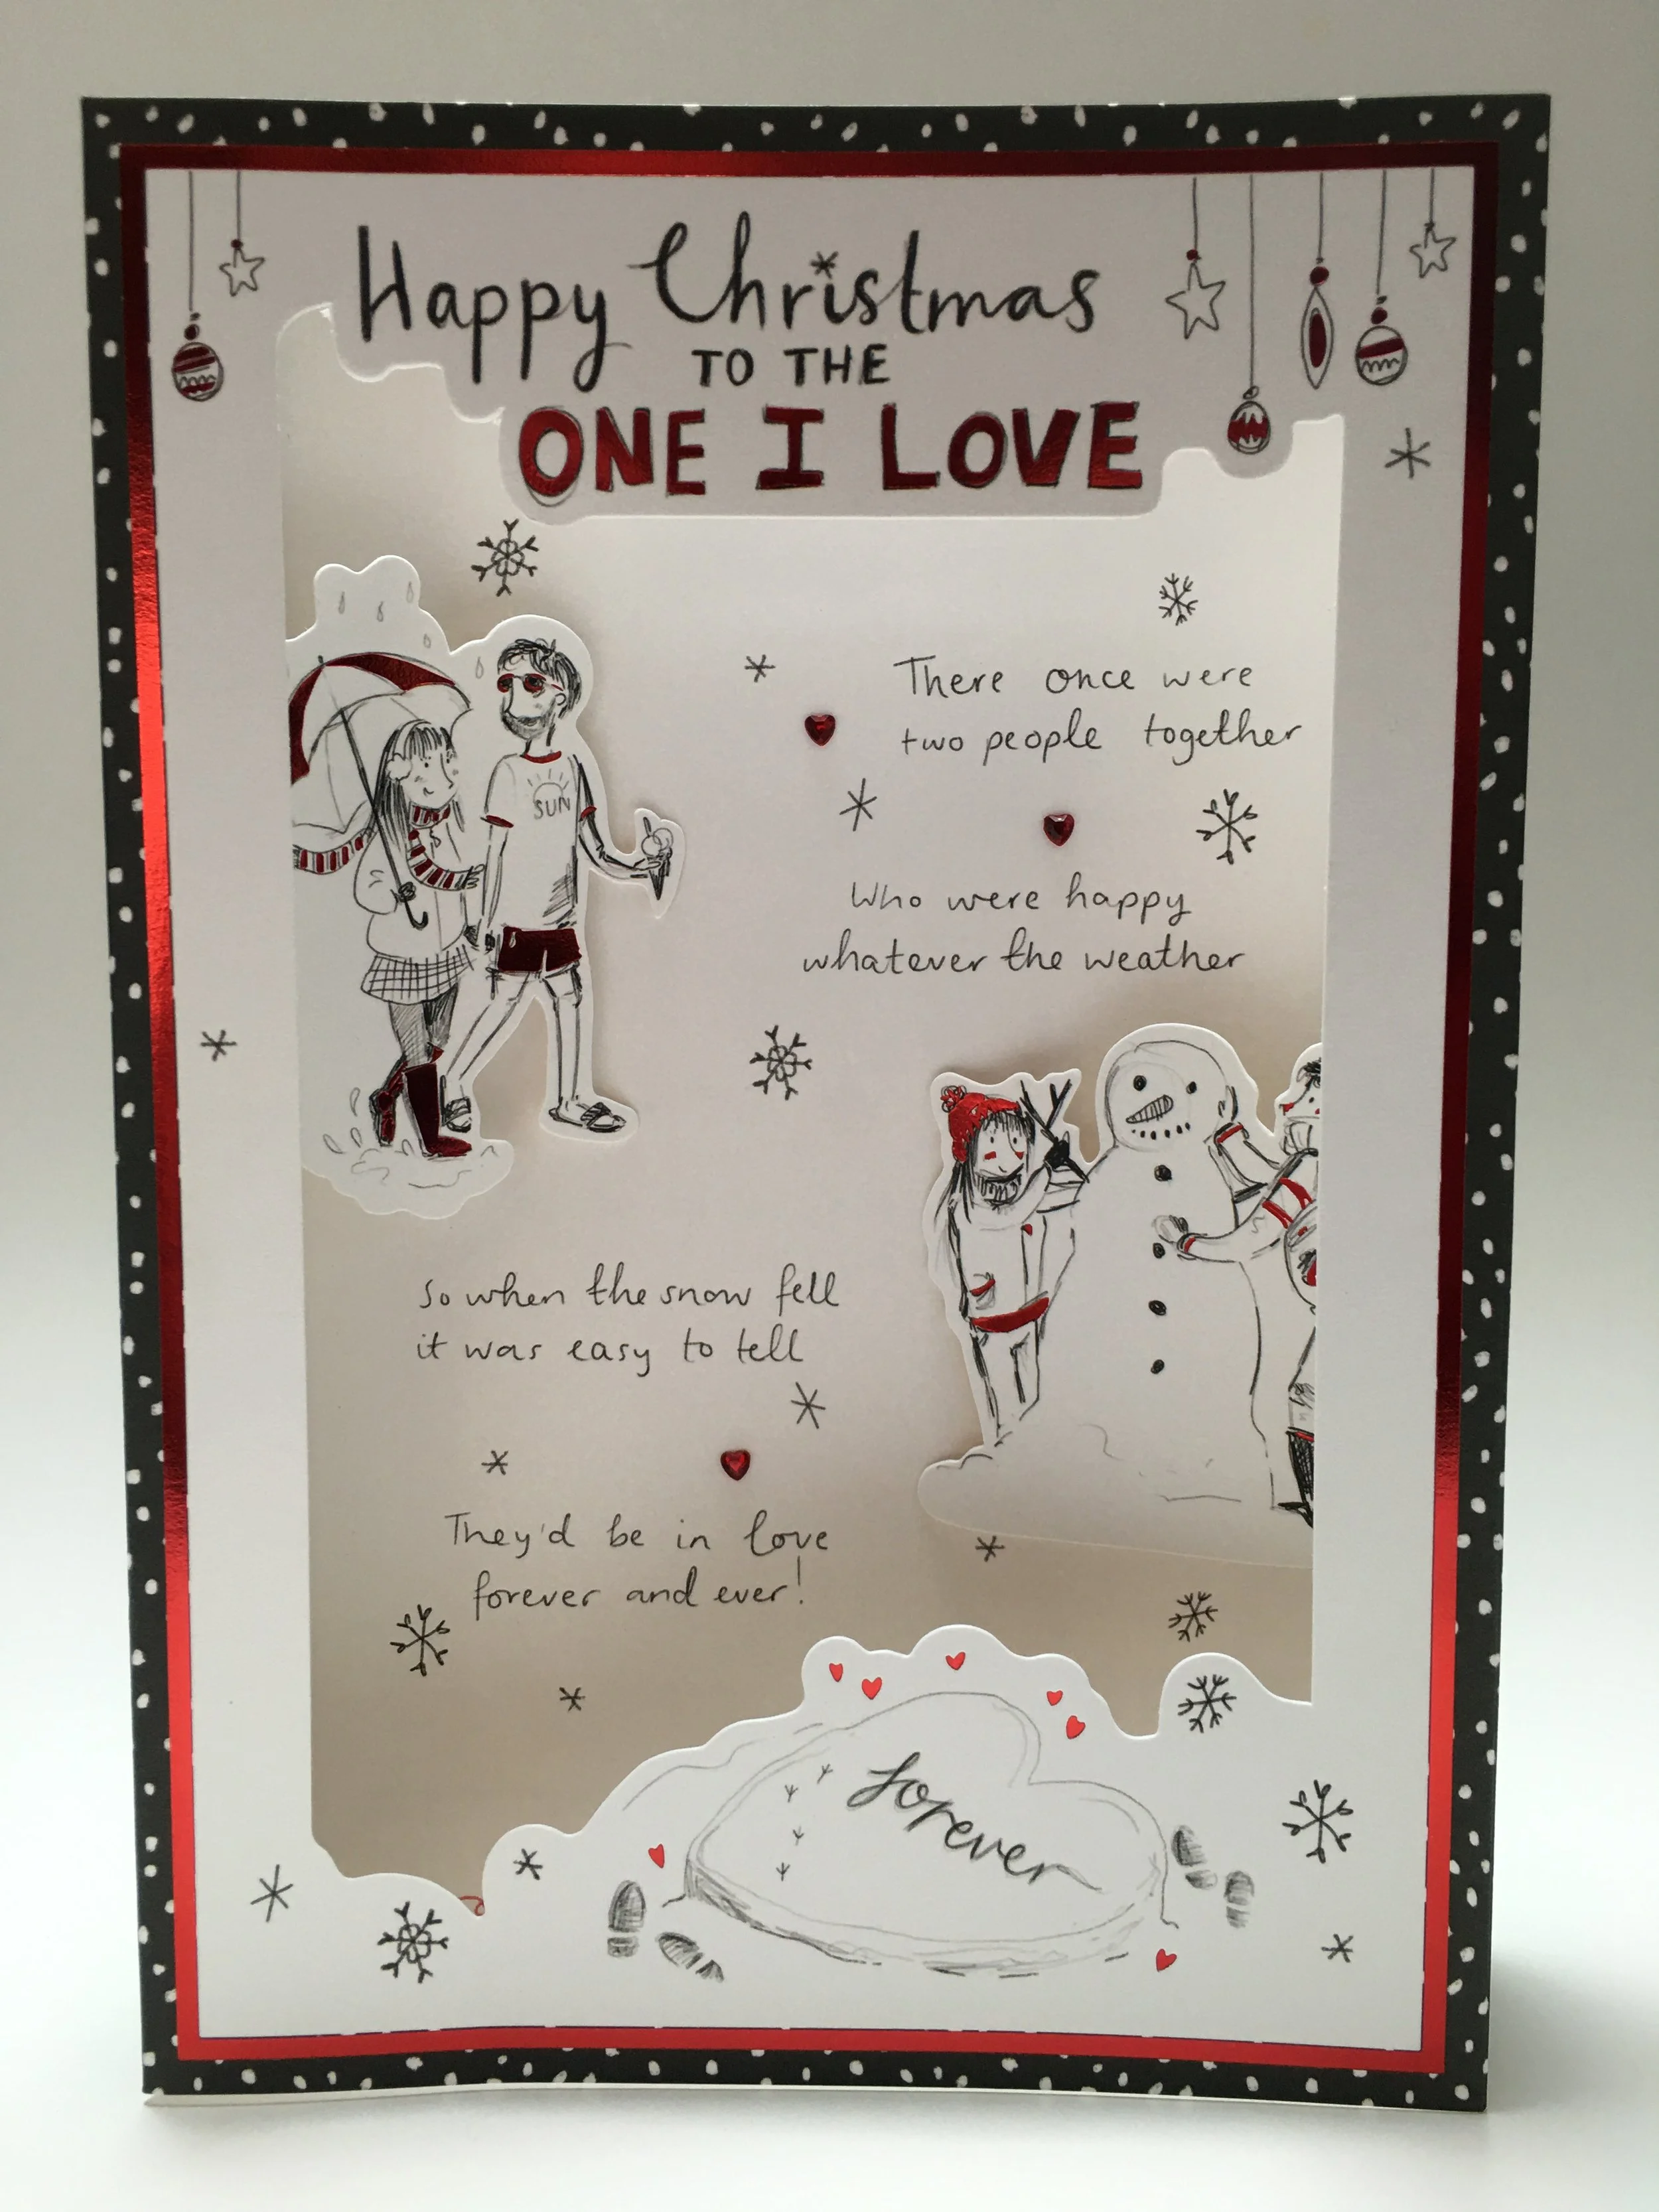 Happy Christmas
TO THE
ONE I LOVE
SUN
There once were
two people together
Who were happy
whatever the weather
So when the snow fell
it was easy to tell
They'd be in love
forever and ever!
forever